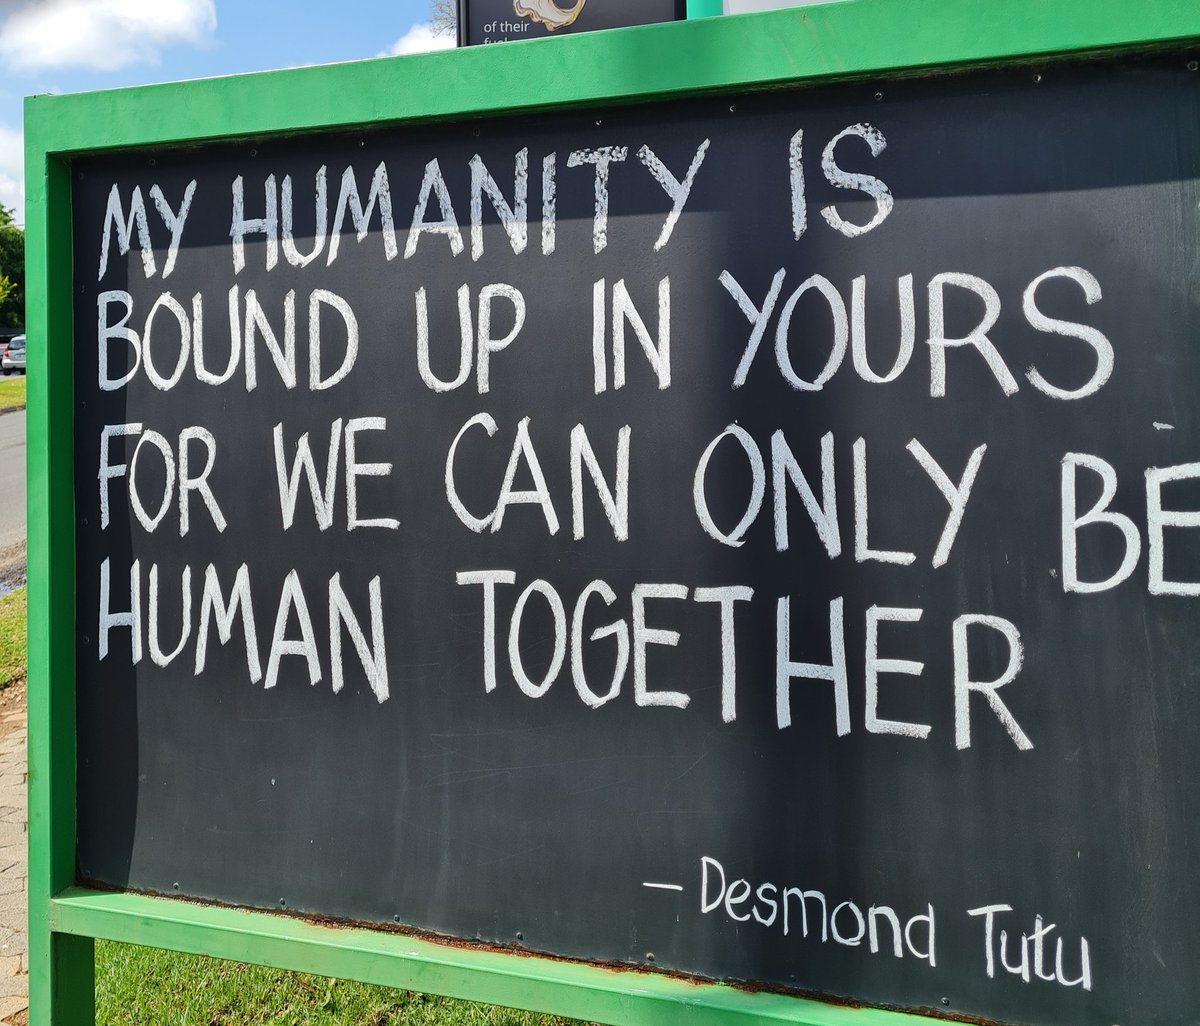 of their
fuel
MY HUMANITY IS
BOUND UP IN YOURS
FOR WE CAN ONLY BE
HUMAN TOGETHER
– Desmond Tutu